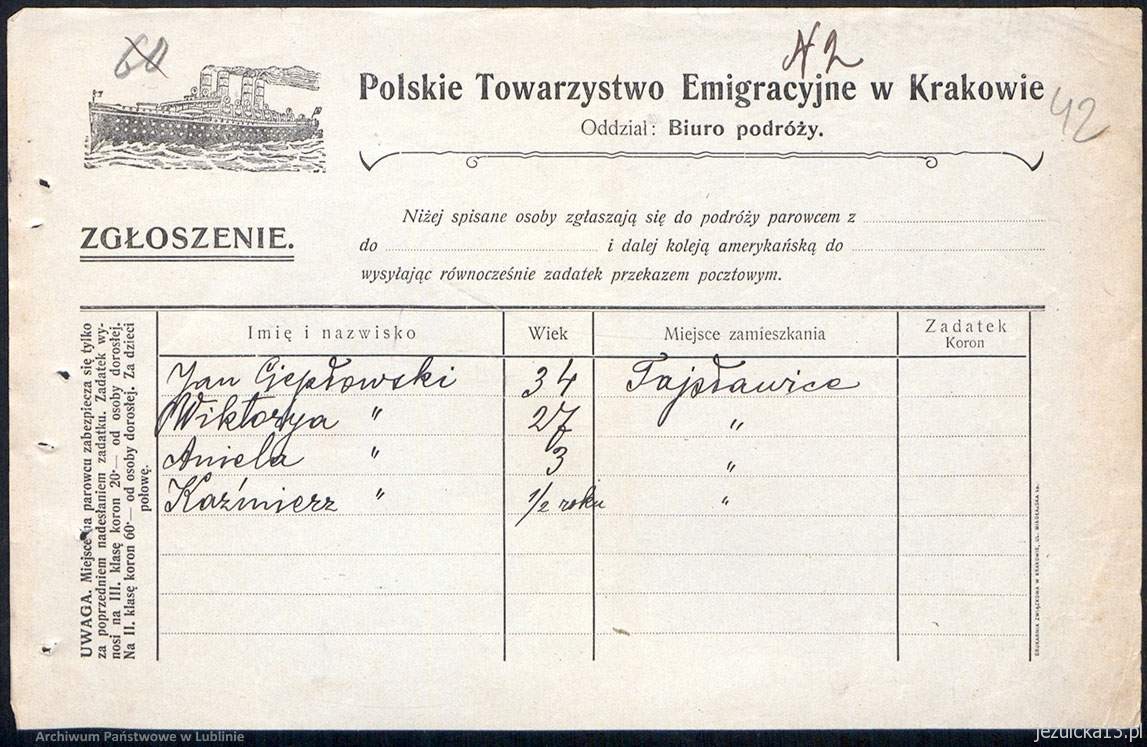 60
N 2
Polskie Towarzystwo Emigracyjne w Krakowie
42
Oddział: Biuro podróży.
ZGŁOSZENIE.
Niżej spisane osoby zgłaszają się do podróży parowcem z
do i dalej koleją amerykańską do
wysyłając równocześnie zadatek przekazem pocztowym.
UWAGA. Miejsce na parowcu zabezpiecza się tylko
za poprzedniem nadesłaniem zadatku. Zadatek wy-
nosi na III. klasę koron 20·— od osoby dorosłej.
Na II. klasę koron 60·— od osoby dorosłej. Za dzieci
połowę.
Imię i nazwisko Wiek Miejsce zamieszkania Zadatek
Koron
Jan Ciepłowski 34 Fajsławice
Wiktorya " 27 "
Aniela " 3 "
Kaźmierz " 1/2 roku "
DRUKARNIA ZWIĄZKOWA W KRAKOWIE, UL. MIKOŁAJSKA 13.
Archiwum Państwowe w Lublinie
jezuicka13.pl